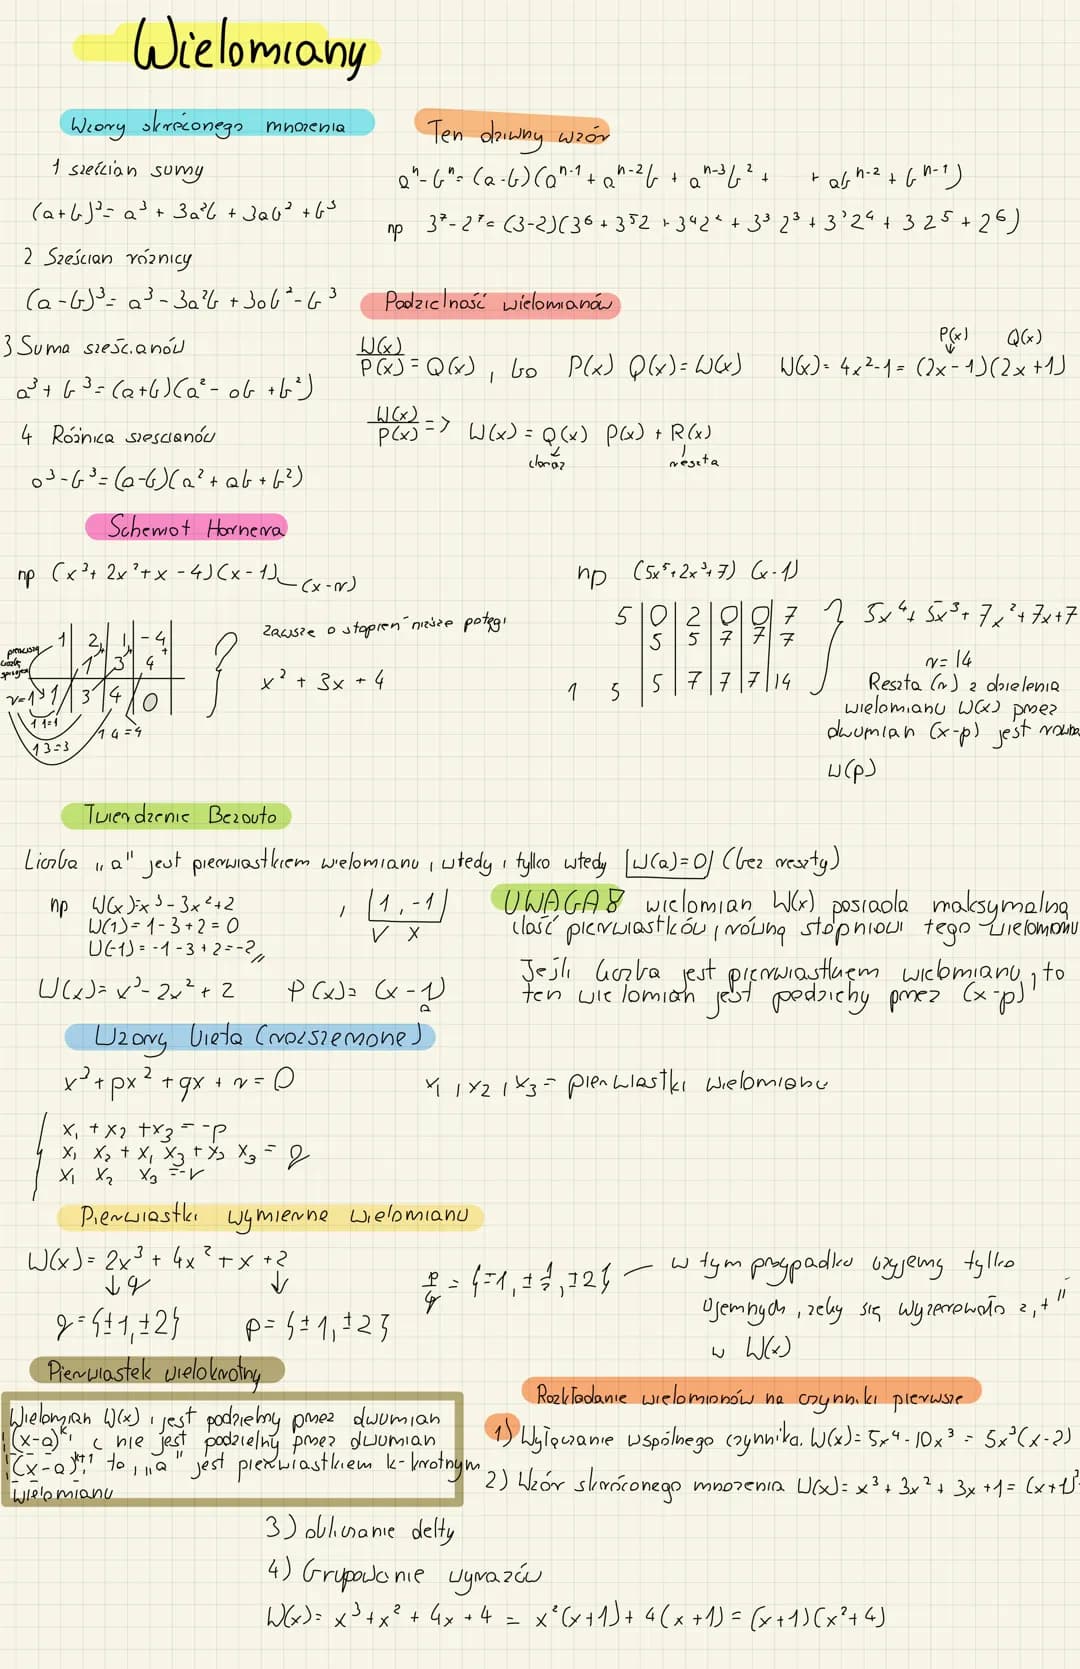 Wielomiany
Wzory skróconego mnożenia
1 sześcian sumy
(a+b)³ = a³ + 3a²b + 3ab² + b³
2 Sześcian różnicy
(a-b)³ = a³ - 3a²b + 3ab² - b³
3 Suma sześcianów
a³ + b³ = (a+b)(a² - ab + b²)
4 Różnica sześcianów
a³ - b³ = (a-b)(a² + ab + b²)
Ten dziwny wzór
aⁿ - bⁿ = (a-b)(aⁿ⁻¹ + aⁿ⁻²b + aⁿ⁻³b² + + abⁿ⁻² + bⁿ⁻¹)
np 3⁷ - 2⁷ = (3-2)(3⁶ + 3⁵2 + 3⁴2² + 3³2³ + 3²2⁴ + 3 2⁵ + 2⁶)
Podzielność wielomianów
W(x)/P(x) = Q(x), bo P(x) Q(x) = W(x)
P(x) Q(x)
W(x) = 4x²-1 = (2x-1)(2x+1)
W(x)/P(x) => W(x) = Q(x) P(x) + R(x)
iloraz reszta
Schemat Hornera
np (x³ + 2x² + x - 4)(x-1) (x-r)
1 | 2 | 1 | -4
1 3 4
r=1 1 | 3 | 4 | 0
1 1=1
1 3=3
1 4=4
zawsze o stopień niższe potęgi
x² + 3x + 4
np (5x⁵+2x³+7) (x-1)
5 | 0 | 2 | 0 | 0 | 7
5 | 5 | 7 | 7 | 7
1 5 | 5 | 7 | 7 | 7 | 14
5x⁴ + 5x³ + 7x² + 7x + 7
r = 14
Reszta (r) z dzielenia
wielomianu W(x) przez
dwumian (x-p) jest równa
W(p)
Twierdzenie Bezouta
Liczba "a" jest pierwiastkiem wielomianu, wtedy i tylko wtedy W(a)=0 (bez reszty)
np W(x)=x³-3x²+2
W(1)=1-3+2=0
W(-1)=-1-3+2=-2
, 1, -1
V X
W(x)= x³-2x²+2 P(x)= (x-1)
a
UWAGA! wielomian W(x) posiada maksymalną
ilość pierwiastków, równą stopniowi tego wielomianu
Jeśli liczba jest pierwiastkiem wielomianu, to
ten wielomian jest podzielny przez (x-p)
Wzory Vieta (rozszerzone)
x³ + px² + qx + r = 0
x₁, x₂, x₃ = pierwiastki wielomianu
x₁ + x₂ + x₃ = -p
x₁ x₂ + x₁ x₃ + x₂ x₃ = q
x₁ x₂ x₃ = -r
Pierwiastki wymierne wielomianu
W(x) = 2x³ + 4x² + x + 2
q
q = {±1, ±2} p = {±1, ±2}
p/q = {±1, ±½, ±2}
w tym przypadku użyjemy tylko
ujemnych, żeby się wyzerowało z "+"
w W(x)
Pierwiastek wielokrotny
Wielomian W(x), jest podzielny przez dwumian
(x-a)ᵏ, i nie jest podzielny przez dwumian
(x-a)ᵏ⁺¹, to "a" jest pierwiastkiem k-krotnym
wielomianu
Rozkładanie wielomianów na czynniki pierwsze
1) Wyłączanie wspólnego czynnika. W(x)= 5x⁴-10x³ = 5x³(x-2)
2) Wzór skróconego mnożenia W(x)= x³ + 3x² + 3x + 1 = (x+1)³
3) obliczanie delty
4) Grupowanie wyrazów
W(x)= x³ + x² + 4x + 4 = x²(x+1) + 4(x+1) = (x+1)(x²+4)